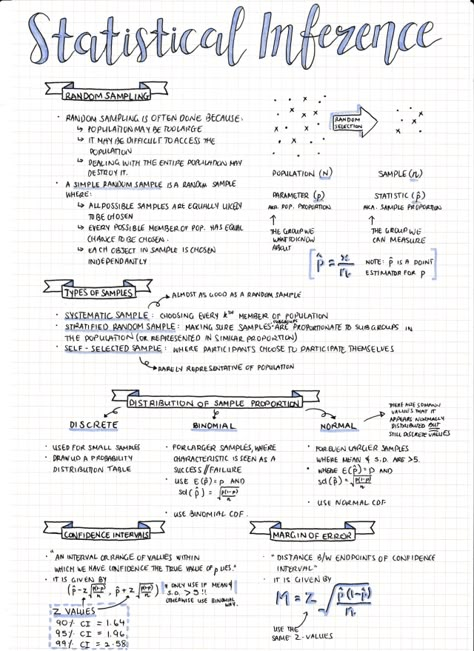 Statistical Inference
RANDOM SAMPLING
• RANDOM SAMPLING IS OFTEN DONE BECAUSE:
↳ POPULATION MAY BE TOO LARGE
↳ IT MAY BE DIFFICULT TO ACCESS THE
POPULATION
↳ DEALING WITH THE ENTIRE POPULATION MAY
DESTROY IT.
• A SIMPLE RANDOM SAMPLE IS A RANDOM SAMPLE
WHERE:
↳ ALL POSSIBLE SAMPLES ARE EQUALLY LIKELY
TO BE CHOSEN
↳ EVERY POSSIBLE MEMBER OF POP. HAS EQUAL
CHANCE TO BE CHOSEN.
↳ EACH OBJECT IN SAMPLE IS CHOSEN
INDEPENDANTLY
RANDOM
SELECTION
POPULATION (N)
SAMPLE (n)
PARAMETER (p)
STATISTIC (p̂)
AKA. POP. PROPORTION
AKA. SAMPLE PROPORTION
THE GROUP WE
WANT TO KNOW
ABOUT
THE GROUP WE
CAN MEASURE
p̂ = x/n
NOTE: p̂ IS A POINT
ESTIMATOR FOR p
TYPES OF SAMPLES
ALMOST AS GOOD AS A RANDOM SAMPLE
• SYSTEMATIC SAMPLE: CHOOSING EVERY kth MEMBER OF POPULATION
• STRATIFIED RANDOM SAMPLE: MAKING SURE SAMPLES ARE PROPORTIONATE TO SUBGROUPS IN
THE POPULATION (OR REPRESENTED IN SIMILAR PROPORTION)
• SELF-SELECTED SAMPLE: WHERE PARTICIPANTS CHOOSE TO PARTICIPATE THEMSELVES
RARELY REPRESENTATIVE OF POPULATION
DISTRIBUTION OF SAMPLE PROPORTION
DISCRETE
• USED FOR SMALL SAMPLES
• DRAW UP A PROBABILITY
DISTRIBUTION TABLE
BINOMIAL
• FOR LARGER SAMPLES, WHERE
CHARACTERISTIC IS SEEN AS A
SUCCESS//FAILURE
• USE E(p̂) = p AND
sd(p̂) = √(p(1-p)/n)
• USE BINOMIAL CDF.
NORMAL
• FOR EVEN LARGER SAMPLES
WHERE MEAN & S.D. ARE >5.
• WHERE E(p̂) = p AND
sd(p̂) = √(p(1-p)/n)
• USE NORMAL CDF
VALUES THAT IT
APPEARS NORMALLY
DISTRIBUTED BUT
STILL DISCRETE VALUES
CONFIDENCE INTERVALS
• "AN INTERVAL OR RANGE OF VALUES WITHIN
WHICH WE HAVE CONFIDENCE THE TRUE VALUE OF p LIES."
• IT IS GIVEN BY
(p̂ - z√(p̂(1-p̂)/n), p̂ + z√(p̂(1-p̂)/n))
* ONLY USE IF MEAN &
S.D. > 5 !!
OTHERWISE USE BINOMIAL
WAY.
Z VALUES
90% CI = 1.64
95% CI = 1.96
99% CI = 2.58
MARGIN OF ERROR
• "DISTANCE B/W ENDPOINTS OF CONFIDENCE
INTERVAL"
• IT IS GIVEN BY
M = z√(p̂(1-p̂)/n)
USE THE
SAME Z-VALUES